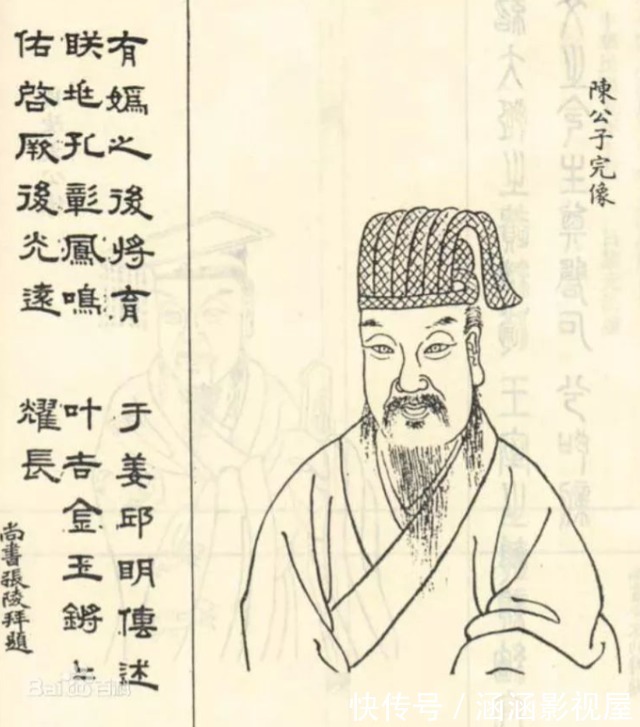 陳公子完像
有嬀之後將育 于姜邱明傳述
孔彰鳳鳴 叶吉金玉鏘〻
佑啓厥後光遠 耀長
尚書張陵拜題
Bai百科
快传号／涵涵影视屋